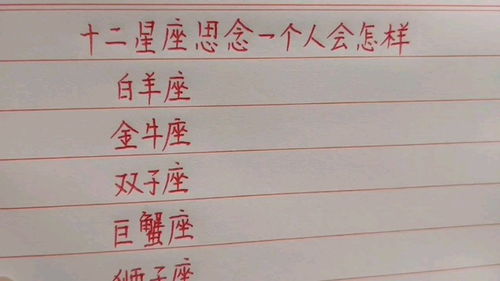 十二星座思念一个人会怎样
白羊座
金牛座
双子座
巨蟹座
狮子座